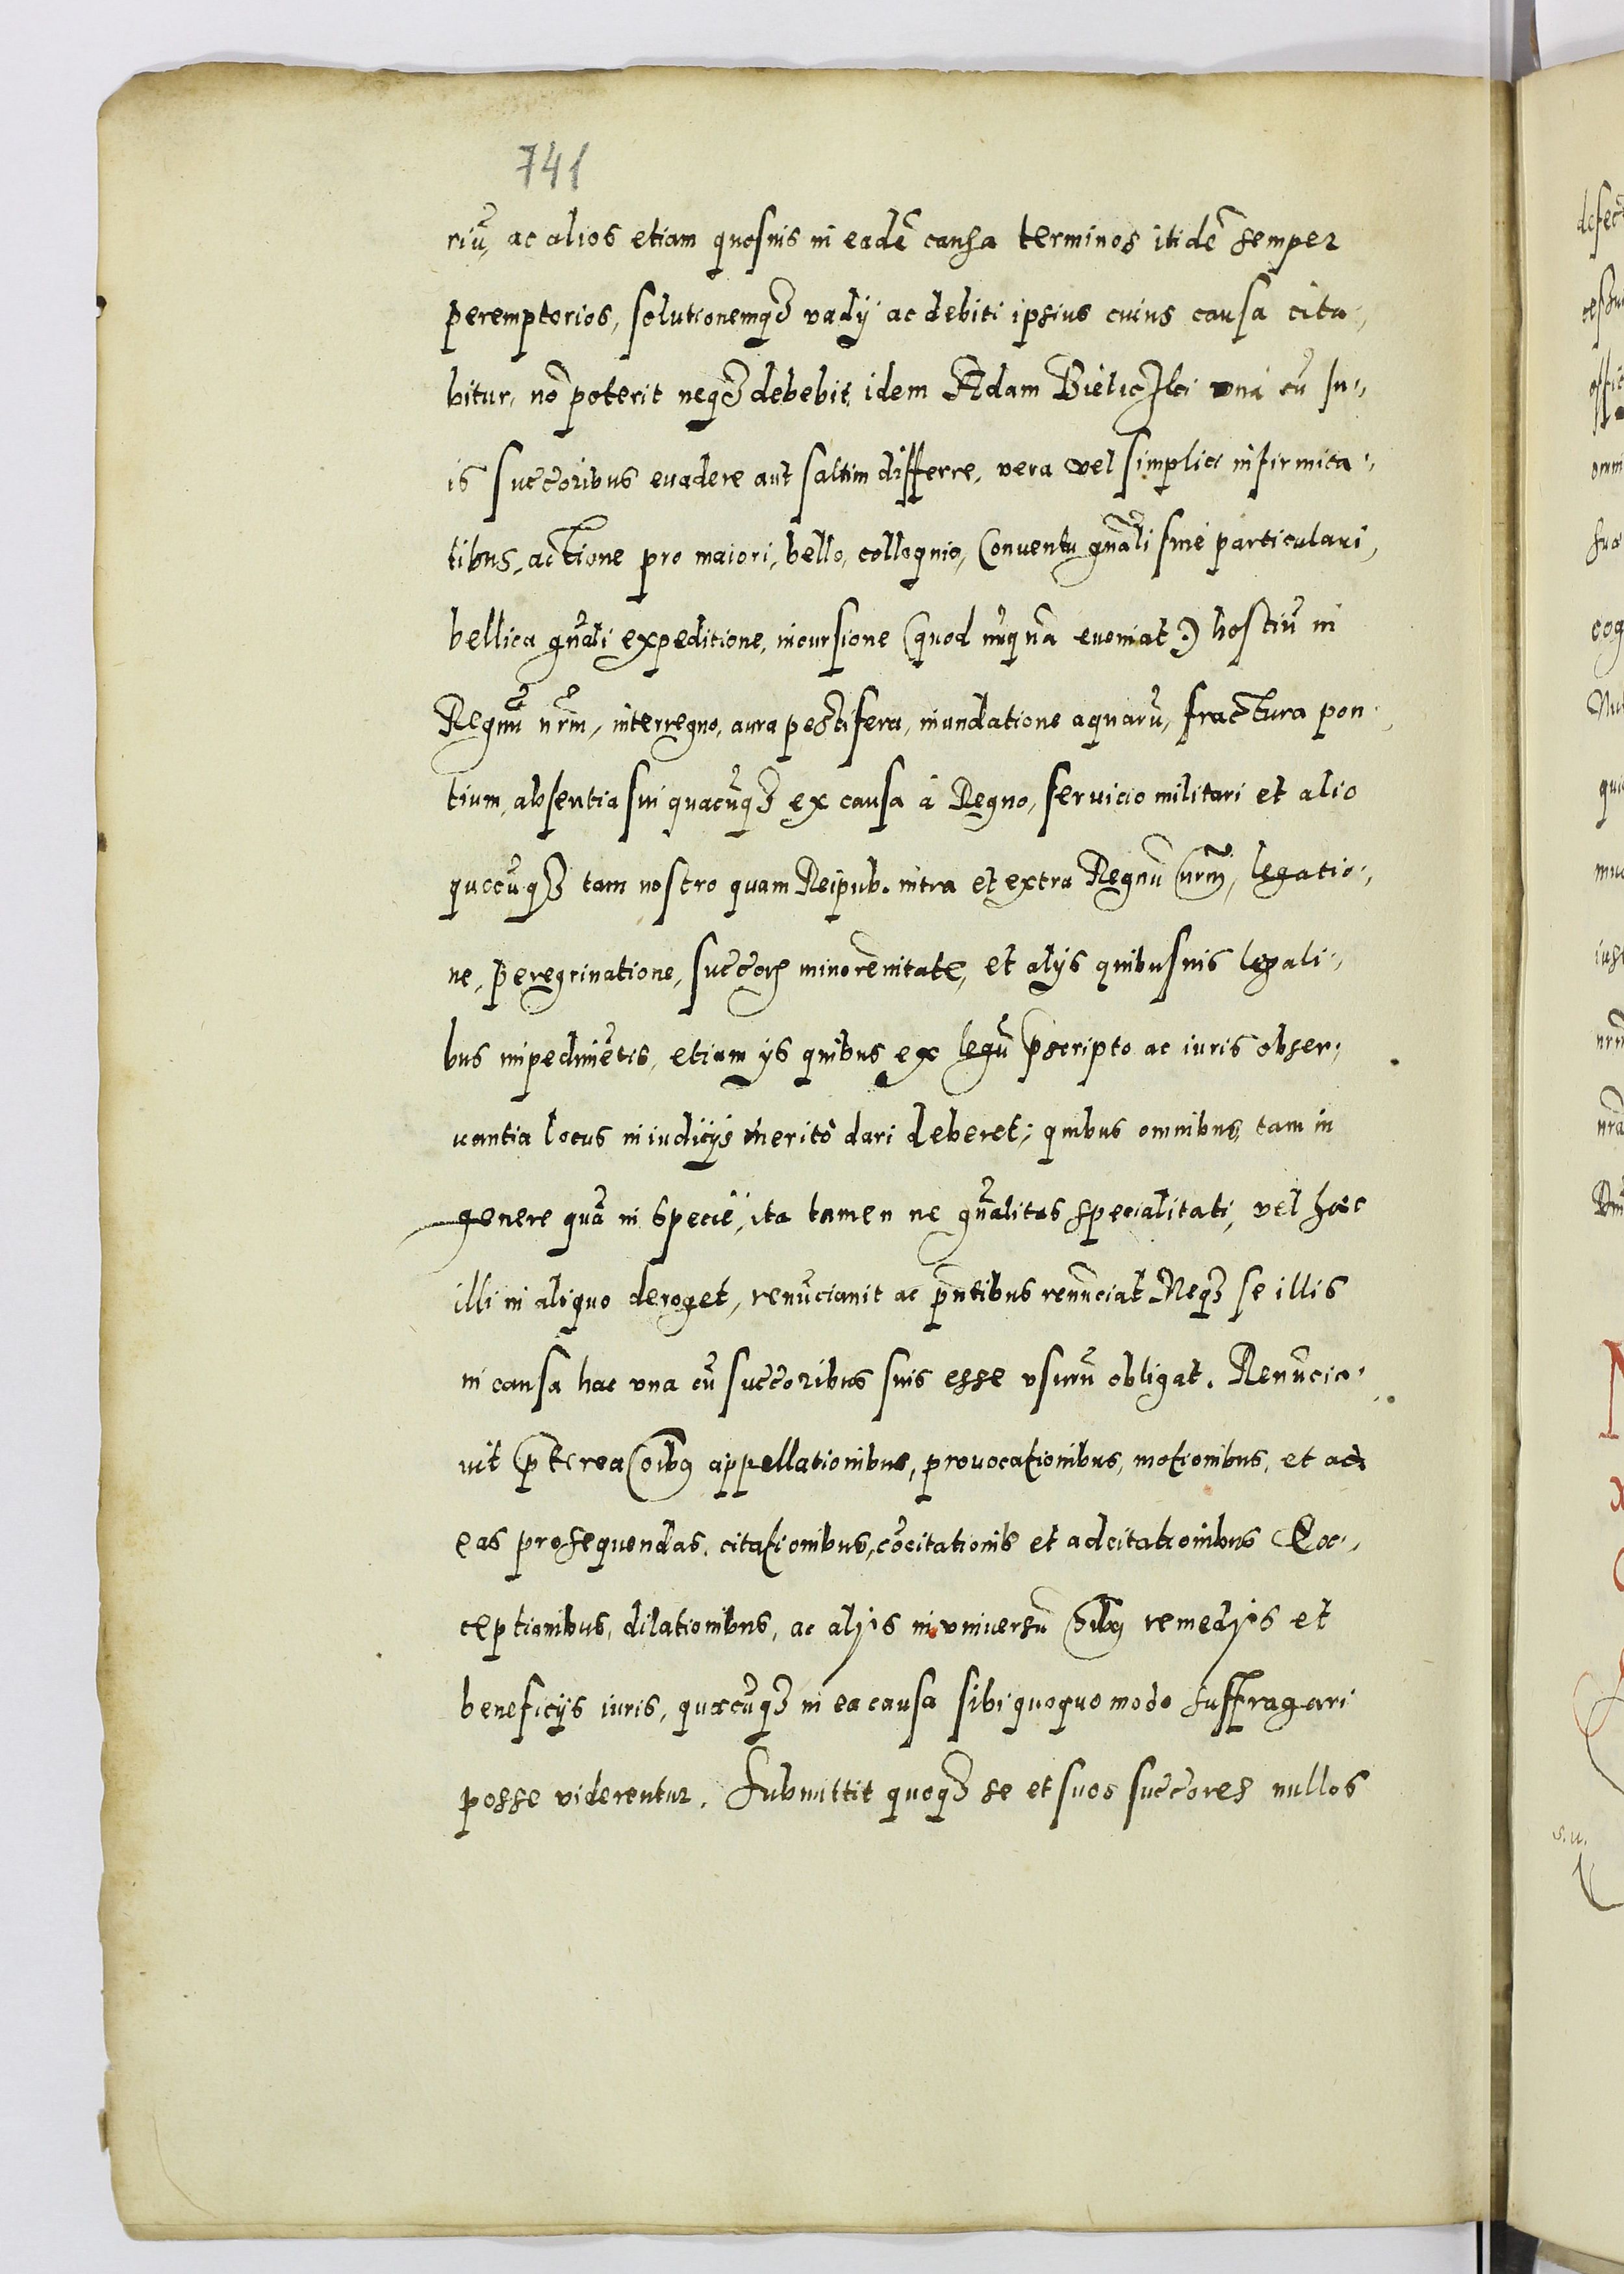 741
riū, ac alios etiam quosuis in eadē causa terminos itidē semper
peremptorios, solutionemqȝ vadij ac debiti ipsius cuius causa cita-,
bitur, nō poterit neqȝ debebit idem Adam Bielicżki vnà cū su-,
is succ̄oribus euadere aut saltim differre, vera vel simplici infirmita-,
tibus, actione pro maiori, bello, colloquio, Conuentu gn̄ali siue particulari,
bellica gn̄ali expeditione, incursione (quod nūqnā eueniat:) hostiū in
Regnū nr̄m, interregno, aura pestifera, inundatione aquarū, fractura pon-,
tium, absentia sui quacūqȝ ex causa à Regno, seruicio militari et alio
quocūqȝ tam nostro quam Reipub. intra et extra Regnū nr̄m, legatio-,
ne, peregrinatione, succ̄orꝝ minorēnitate, et alijs quibusuis legali-,
bus impedimētis, etiam ijs quibus ex legū p̄scripto ac iuris obser-,
uantia locus in iudicijs meritò dari deberet; quibus omnibus, tam in
genere quā in specie, ita tamen ne gn̄alitas specialitati, vel haec
illi in aliquo deroget, renūciauit ac p̄ntibus renūciat Neqȝ se illis
in causa hac vna cū succ̄oribus suis esse vsurū obligat. Renūcia-,
uit p̄terea oībꝯ appellationibus, prouocationibus, motionibus, et ad
eas prosequendas, citationibus, cōcitationib et adcitationibus Exc-,
ceptionibus, dilationibus, ac alijs in vniuersū oībꝯ remedijs et
beneficijs iuris, quæcūqȝ in ea causa sibi quoquo modo suffragari
posse viderentur. Submittit quoqȝ se et suos succ̄ores nullos